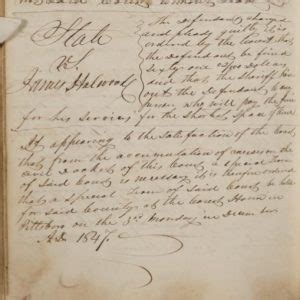 State
Vs.
James Halwood
The Defendant charged
and pleads guilty it is
ordered by the Court that
the Defendant be fined
Sixty one 2/100 Dollars
and that the Sheriff hire
out the Defendant to any
person who will pay the fine
for his services for the Shortest Span of time
It appearing to the satisfaction of the Court
that from the accumulation of causes on the
civil Docket of this Court, a Special Term
of said Court is necessary it is therefore ordered
that a Special Term of said Court be held
for said County at the Court House in
Pittsboro on the 3rd Monday in December
A.D. 1847.